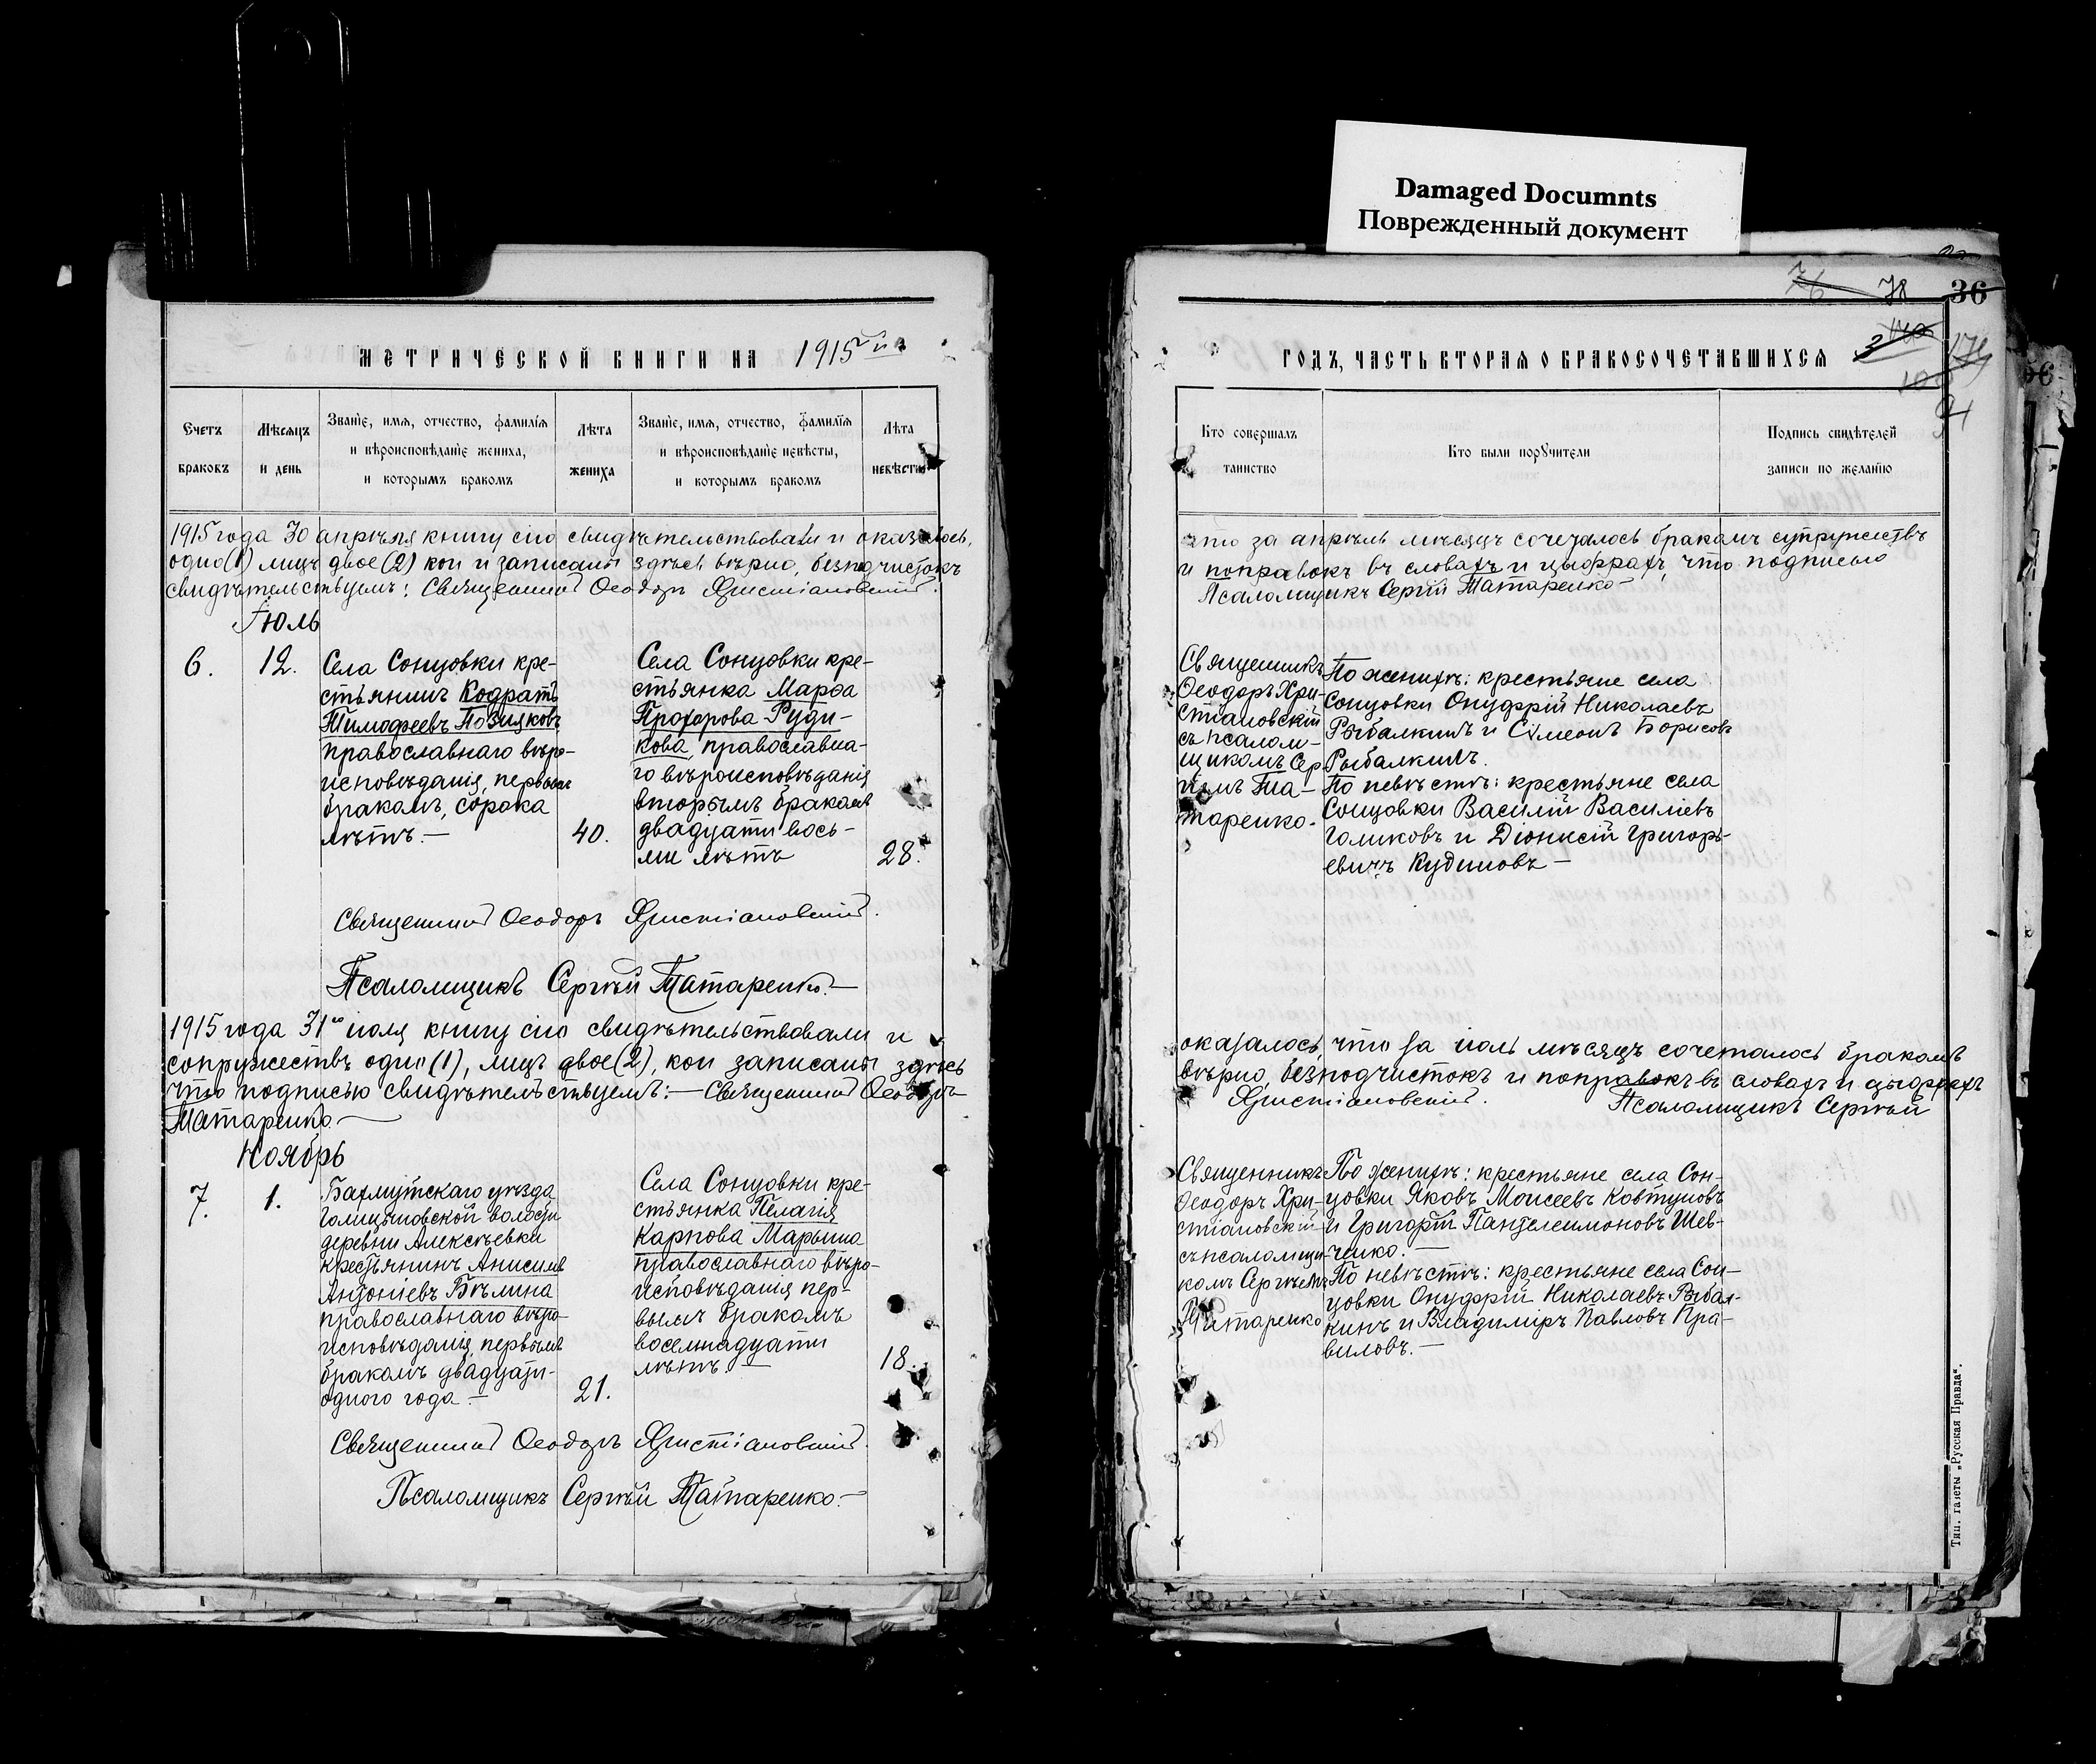 Damaged Documnts
Поврежденный документ
36
78
МЕТРИЧЕСКОЙ КНИГИ НА 1915й
Счетъ браковъ
Мѣсяцъ и день
Званіе, имя, отчество, фамилія и вѣроисповѣданіе жениха, и которымъ бракомъ
Лѣта жениха
Званіе, имя, отчество, фамилія и вѣроисповѣданіе невѣсты, и которымъ бракомъ
Лѣта невѣсты
1915 года 30 апрѣля книгу сію свидѣтельствовали и оказалось,
одно (1) лицъ двое (2) кои и записаны здѣсь вѣрно, безподчистокъ
свидѣтельствуемъ: Священникъ Ѳеодоръ Христіановскій.
Іюль
6.
12.
Села Сонцовки кре-
стьянинъ Кодратъ
Тимофеевъ Позняковъ
православнаго вѣро-
исповѣданія, первымъ
бракомъ, сорока
лѣтъ.—
40.
Села Сонцовки кре-
стьянка Марѳа
Прохорова Руди-
кова, православна-
го вѣроисповѣданія
вторымъ бракомъ
двадцати вось-
ми лѣтъ
28.
Священникъ Ѳеодоръ Христіановскій.
Псаломщикъ Сергѣй Татаренко.—
1915 года 31го іюля книгу сію свидѣтельствовали и
сопружествъ одно (1), лицъ двое (2), кои записаны здѣсь
что подписью свидѣтельствуемъ:— Священникъ Ѳеодоръ
Татаренко.—
Ноябрь
7.
1.
Бахмутскаго уѣзда
Голицыновской волости
деревни Алексѣевки
крестьянинъ Анисимъ
Антоніевъ Бѣлина
православнаго вѣро-
исповѣданія, первымъ
бракомъ двадцати-
одного года.—
21.
Села Сонцовки кре-
стьянка Пелагія
Карпова Марьина
православнаго вѣро-
исповѣданія пер-
вымъ бракомъ
восемнадцати
лѣтъ.—
18.
Священникъ Ѳеодоръ Христіановскій.
Псаломщикъ Сергѣй Татаренко.—
ГОДЪ, ЧАСТЬ ВТОРАЯ О БРАКОСОЧЕТАВШИХСЯ
Кто совершалъ таинство
Кто были поручители
Подпись свидѣтелей записи по желанію
что за апрѣль мѣсяцъ сочеталось бракомъ супружествъ
и поправокъ въ словахъ и цыфрахъ, что подписью
Псаломщикъ Сергѣй Татаренко—
Священникъ
Ѳеодоръ Хри-
стіановскій
съ псалом-
щикомъ Сер-
гѣемъ Та-
таренко.
По женихѣ: крестьяне села
Сонцовки Онуфрій Николаевъ
Рыбалкинъ и Сѵмеонъ Борисовъ
Рыбалкинъ.
По невѣстѣ: крестьяне села
Сонцовки Василій Василіевъ
Голиковъ и Діонисій Григорь-
евичъ Кудиновъ—
оказалось, что за іюль мѣсяцъ сочеталось бракомъ
вѣрно, безподчистокъ и поправокъ въ словахъ и цыфрахъ
Христіановскій. Псаломщикъ Сергѣй
Священникъ
Ѳеодоръ Хри-
стіановскій
съ псаломщи-
комъ Сергѣемъ
Татаренко
По женихѣ: крестьяне села Сон-
цовки Яковъ Моисеевъ Ковтуновъ
и Григорій Пантелеимоновъ Шев-
ченко.—
По невѣстѣ: крестьяне села Сон-
цовки Онуфрій Николаевъ Рыбал-
кинъ и Владиміръ Павловъ Пра-
виловъ.—
Тип. газеты „Русская Правда“.